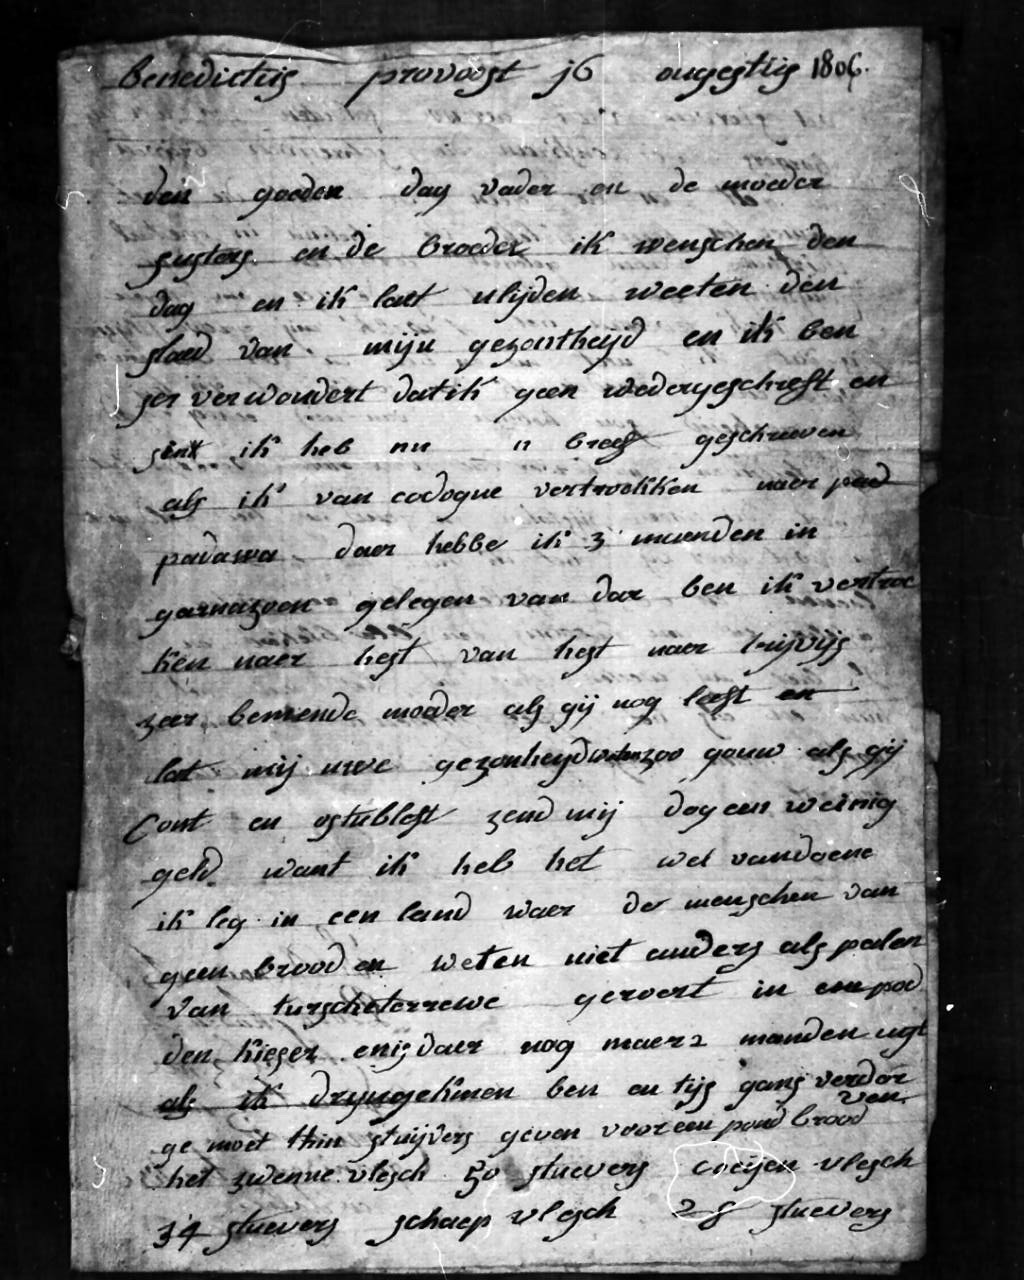 Benedictus provoost j6 ougestus 1806.
den goeden dag vader en de moeder
susters en de broeder ik wenschen den
dag en ik laet ulijden weeten den
staed van mijn gezontheijd en ik ben
ser verwondert dat ik geen wedergeschreft en
ik heb nu 11 breef geschreeven
als ik van codogne vertrockken naer pad
padawa daer hebbe ik 3 maenden in
garnazoen gelegen van dar ben ik vertroc
ken naer hest van hest naer
zeer bemende moeder als gij nog leeft en
lat mij uwe gezonheyd weten zoo gouw als gij
Cont en ostublest zend mij dog een weinig
geld want ik heb het wel vandoene
ik leg in een land waer de menschen van
geen brood en weten niet anders als palen
van turscheterrewe geroert in een pod
den kieser en is daer nog maer 2 manden
als ik ben en tijs gans verdor
ven
ge moet thin stuijvers geven voor een pond brood
het zwenne vlesch 50 stuevers coeijen vlesch
34 stuevers schaep vlesch 28 stuevers